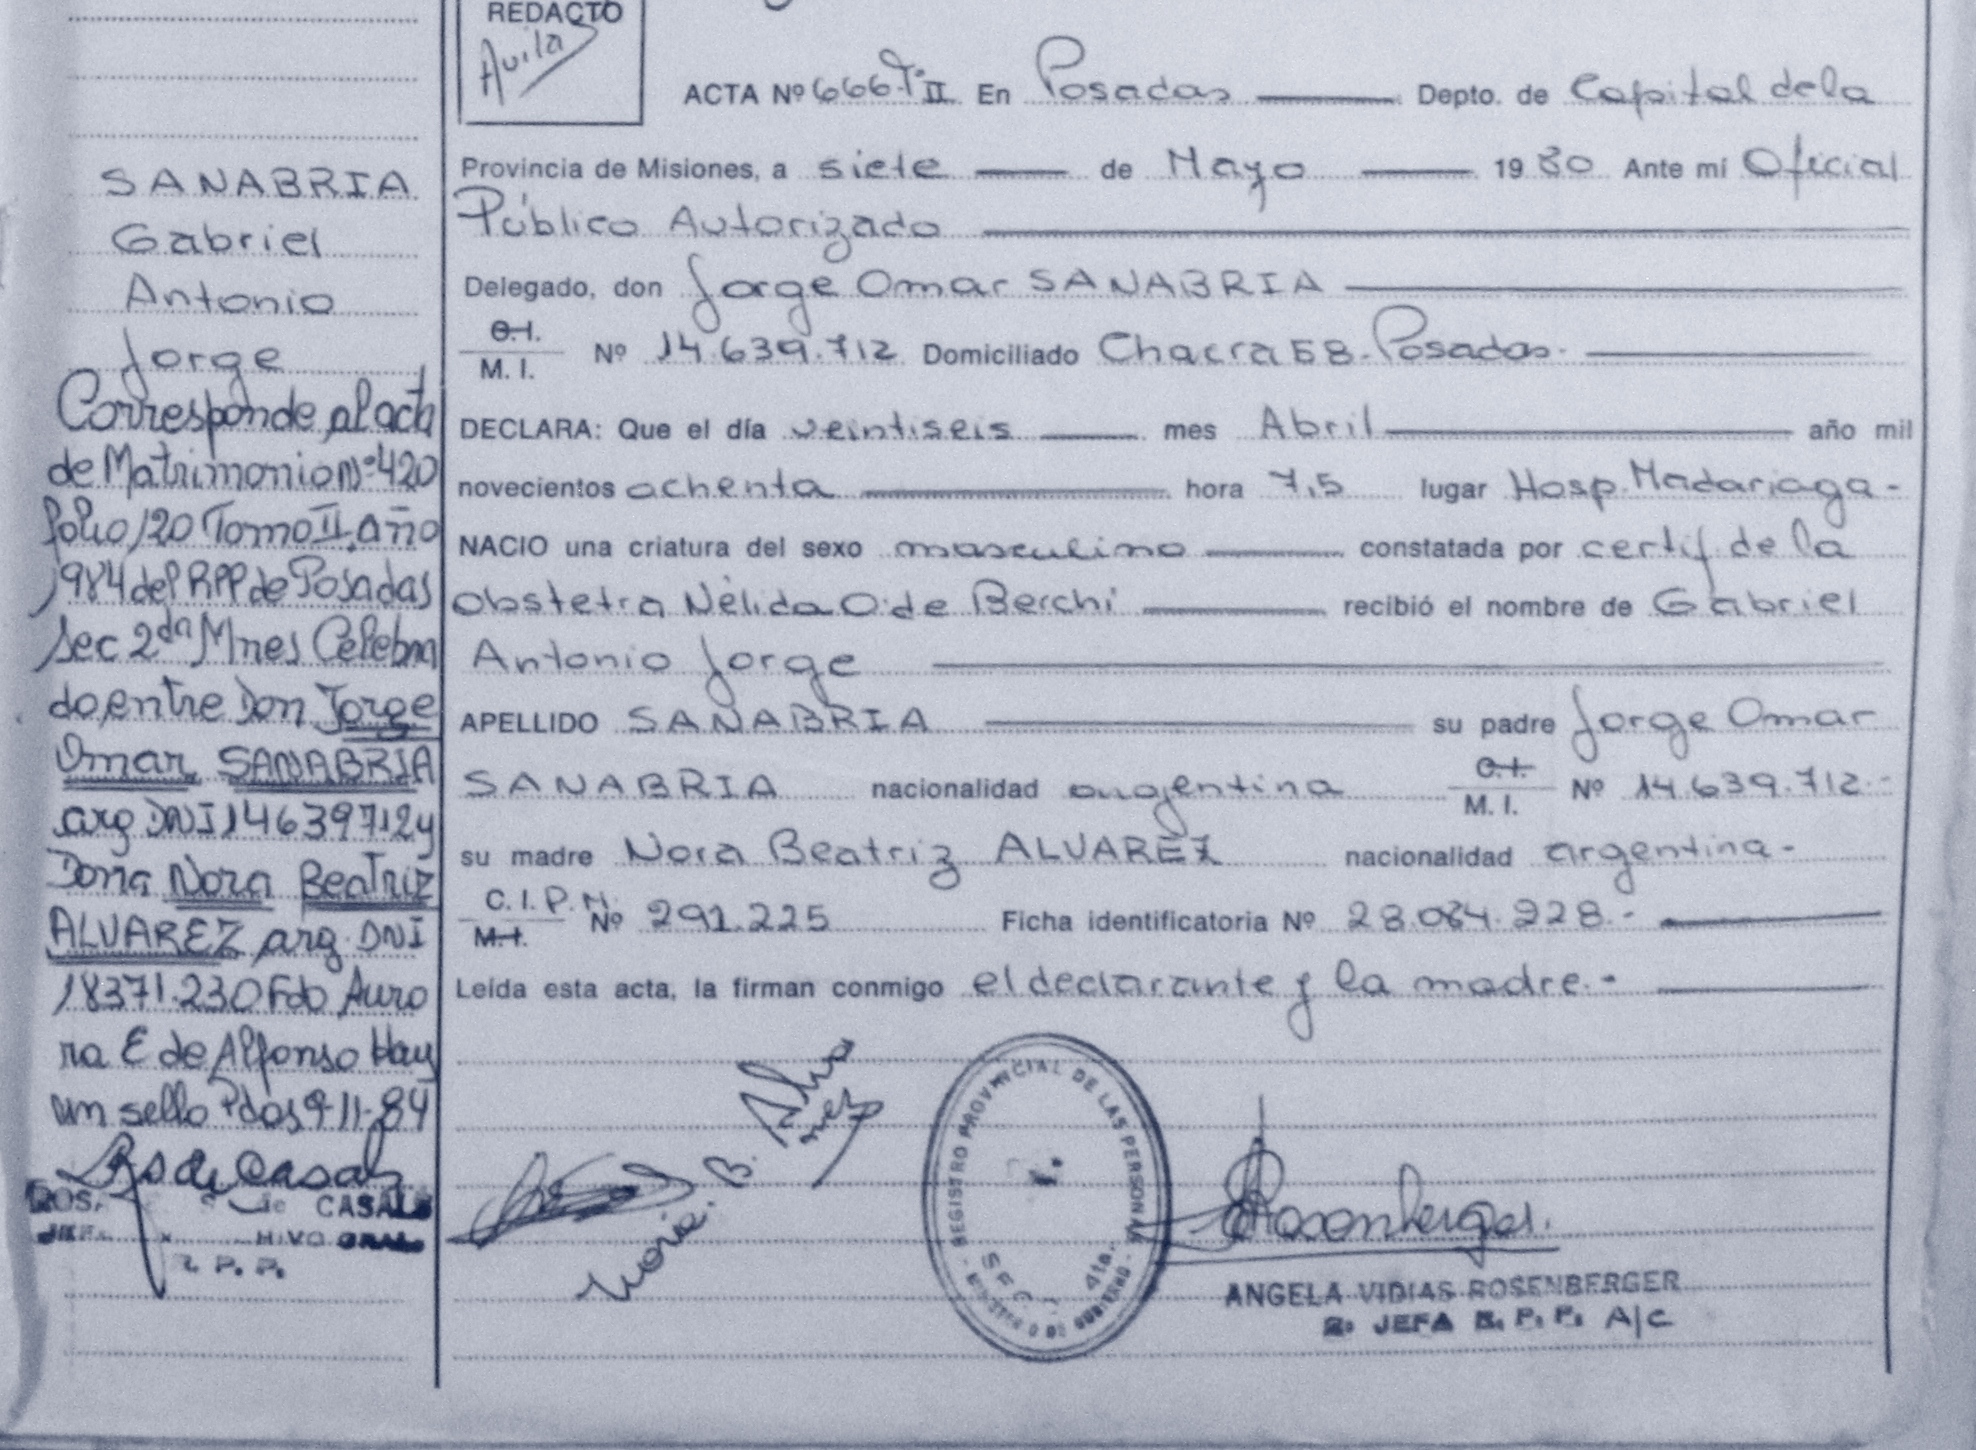 REDACTO
Avilas
ACTA Nº 666 Tº II En Posadas Depto. de Capital de la
Provincia de Misiones, a siete de Mayo 1980 Ante mí Oficial
Público Autorizado
Delegado, don Jorge Omar SANABRIA
C.I.
M. I. Nº 14.639.712 Domiciliado Chacra 58-Posadas-
DECLARA: Que el día veintiseis mes Abril año mil
novecientos ochenta hora 7,5 lugar Hosp. Madariaga-
NACIO una criatura del sexo masculino constatada por certif. de la
obstetra Nélida O. de Berchi recibió el nombre de Gabriel
Antonio Jorge
APELLIDO SANABRIA su padre Jorge Omar
SANABRIA nacionalidad argentina C.I. M. I. Nº 14.639.712.-
su madre Nora Beatriz ALVAREZ nacionalidad argentina-
C. I. P. N.
M.I. Nº 291.225 Ficha identificatoria Nº 28.084.928.-
Leída esta acta, la firman conmigo el declarante y la madre.-
SANABRIA
Gabriel
Antonio
Jorge
Corresponde al acta
de Matrimonio Nº 420
folio 120 Tomo II, año
1984 del RPP de Posadas
Sec 2da Mnes Celebra
do, entre Don Jorge
Omar SANABRIA
arg DNI 14639712 y
Doña Nora Beatriz
ALVAREZ arg. DNI
18371.230 Fdo Auro
ra E de Alfonso Hay
un sello Pdas 9-11-84
Ros de Casals
ROS. S de CASALS
R. P. P.
Nora. B. Alva
rez
REGISTRO PROVINCIAL DE LAS PERSONAS
SEC. 4ta.
- MINISTERIO DE GOBIERNO -
Rosenberger.
ANGELA VIDIAS ROSENBERGER
2º JEFA R. P. P. A/C